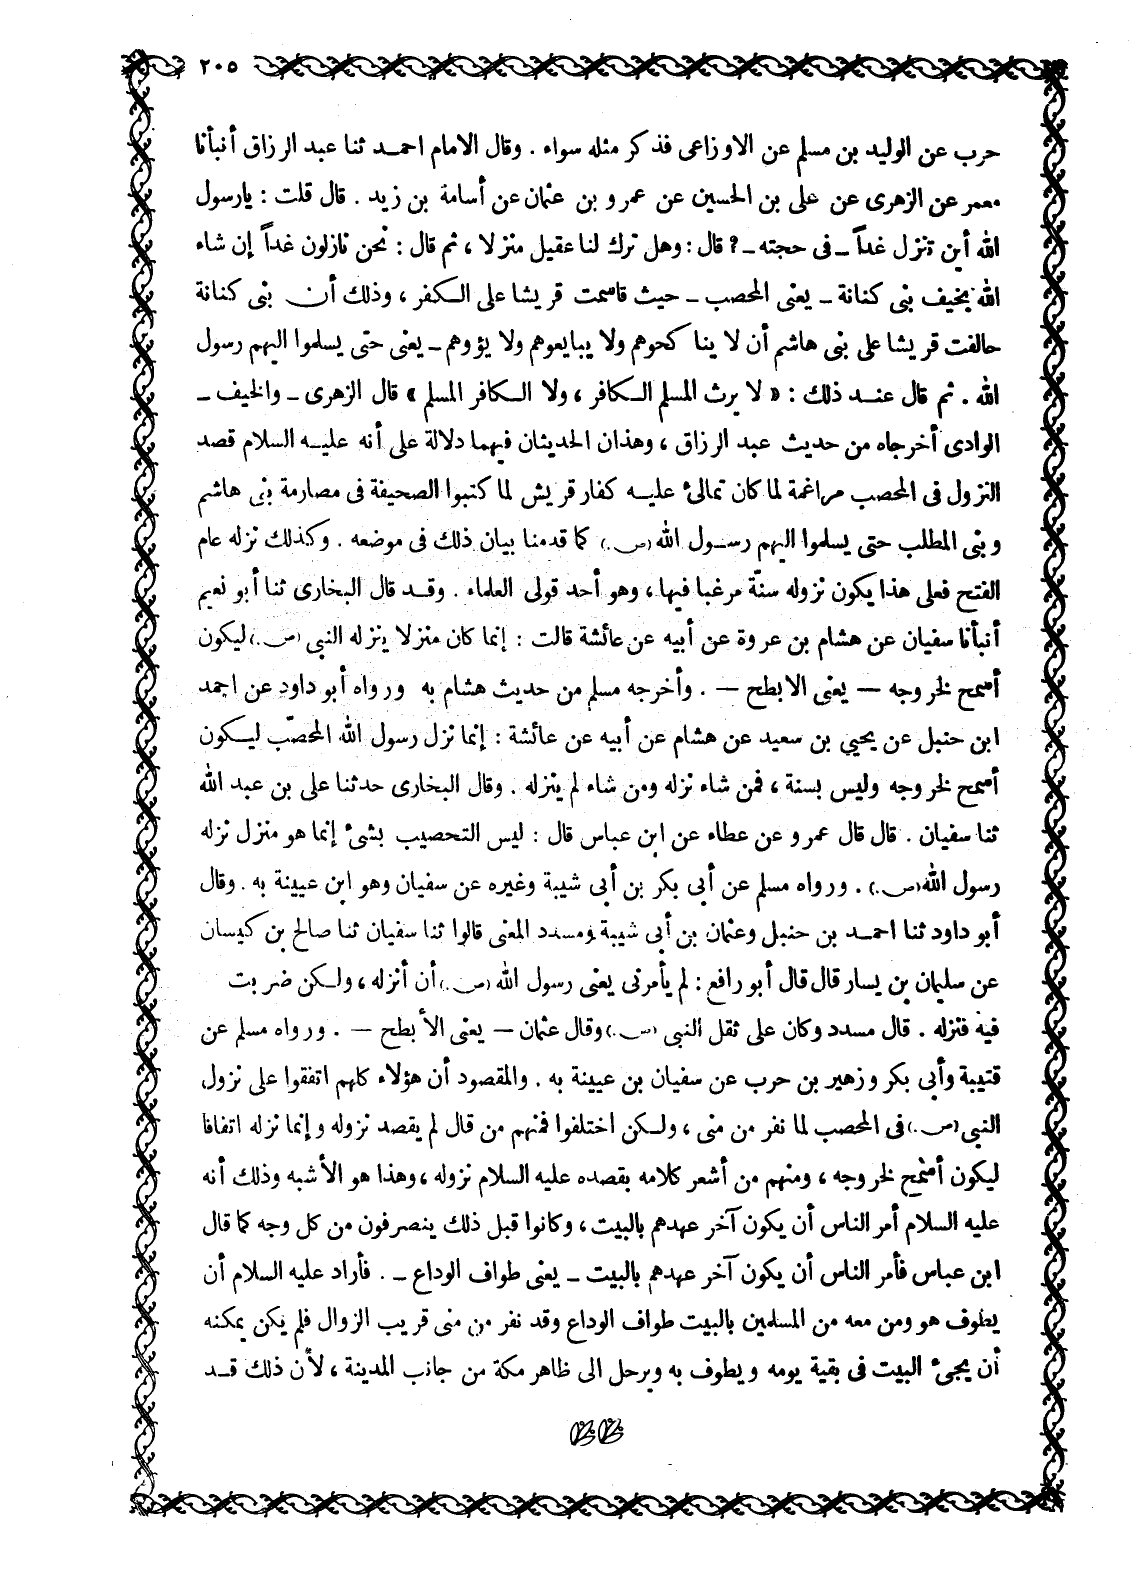 ٢٠٥
حرب عن الوليد بن مسلم عن الاوزاعى فذكر مثله سواء . وقال الامام احمد ثنا عبد الرزاق أنبأنا
معمر عن الزهرى عن على بن الحسين عن عمرو بن عثمان عن أسامة بن زيد . قال قلت : يارسول
الله أين تنزل غداً ـ فى حجته ـ ? قال : وهل ترك لنا عقيل منزلا ، ثم قال : نحن نازلون غداً إن شاء
الله بخيف بنى كنانة ـ يعنى المحصب ـ حيث قاسمت قريشا على الكفر ، وذلك أن بنى كنانة
حالفت قريشا على بنى هاشم أن لا يناكحوهم ولا يبايعوهم ولا يؤوهم ـ يعنى حتى يسلموا اليهم رسول
الله . ثم قال عند ذلك : « لا يرث المسلم الكافر ، ولا الكافر المسلم » قال الزهرى ـ والخيف ـ
الوادى أخرجاه من حديث عبد الرزاق ، وهذان الحديثان فيهما دلالة على أنه عليه السلام قصد
النزول فى المحصب مراغمة لما كان تمالئ عليه كفار قريش لما كتبوا الصحيفة فى مصارمة بنى هاشم
وبنى المطلب حتى يسلموا اليهم رسول الله (ص.) كما قدمنا بيان ذلك فى موضعه . وكذلك نزله عام
الفتح فعلى هذا يكون نزوله سنّة مرغبا فيها ، وهو أحد قولى العلماء . وقد قال البخارى ثنا أبو نعيم
أنبأنا سفيان عن هشام بن عروة عن أبيه عن عائشة قالت : إنما كان منزلا ينزله النبى (ص.) ليكون
أسمح لخروجه — يعنى الابطح — . وأخرجه مسلم من حديث هشام به ورواه أبو داود عن احمد
ابن حنبل عن يحيي بن سعيد عن هشام عن أبيه عن عائشة : إنما نزل رسول الله المحصّب ليكون
أسمح لخروجه وليس بسنة ، فمن شاء نزله ومن شاء لم ينزله . وقال البخارى حدثنا على بن عبد الله
ثنا سفيان . قال قال عمرو عن عطاء عن ابن عباس قال : ليس التحصيب بشئ إنما هو منزل نزله
رسول الله (ص.) . ورواه مسلم عن أبى بكر بن أبى شيبة وغيره عن سفيان وهو ابن عيينة به . وقال
أبو داود ثنا احمد بن حنبل وعثمان بن أبى شيبة ومسدد المعنى قالوا ثنا سفيان ثنا صالح بن كيسان
عن سليمان بن يسار قال قال أبو رافع : لم يأمرنى يعنى رسول الله (ص.) أن أنزله ، ولكن ضربت
فيه فنزله . قال مسدد وكان على ثقل النبى (ص.) وقال عثمان — يعنى الأبطح — . ورواه مسلم عن
قتيبة وأبى بكر وزهير بن حرب عن سفيان بن عيينة به . والمقصود أن هؤلاء كلهم اتفقوا على نزول
النبى (ص.) فى المحصب لما نفر من منى ، ولكن اختلفوا فمنهم من قال لم يقصد نزوله وإنما نزله اتفاقا
ليكون أسمح لخروجه ، ومنهم من أشعر كلامه بقصده عليه السلام نزوله ، وهذا هو الأشبه وذلك أنه
عليه السلام أمر الناس أن يكون آخر عهدهم بالبيت ، وكانوا قبل ذلك ينصرفون من كل وجه كما قال
ابن عباس فأمر الناس أن يكون آخر عهدهم بالبيت ـ يعنى طواف الوداع ـ . فأراد عليه السلام أن
يطوف هو ومن معه من المسلمين بالبيت طواف الوداع وقد نفر من منى قريب الزوال فلم يكن يمكنه
أن يجئ البيت فى بقية يومه ويطوف به ويرحل الى ظاهر مكة من جانب المدينة ، لأن ذلك قد